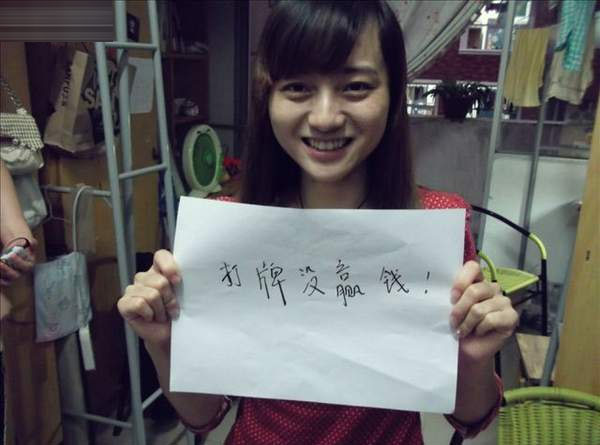 打牌没赢钱！